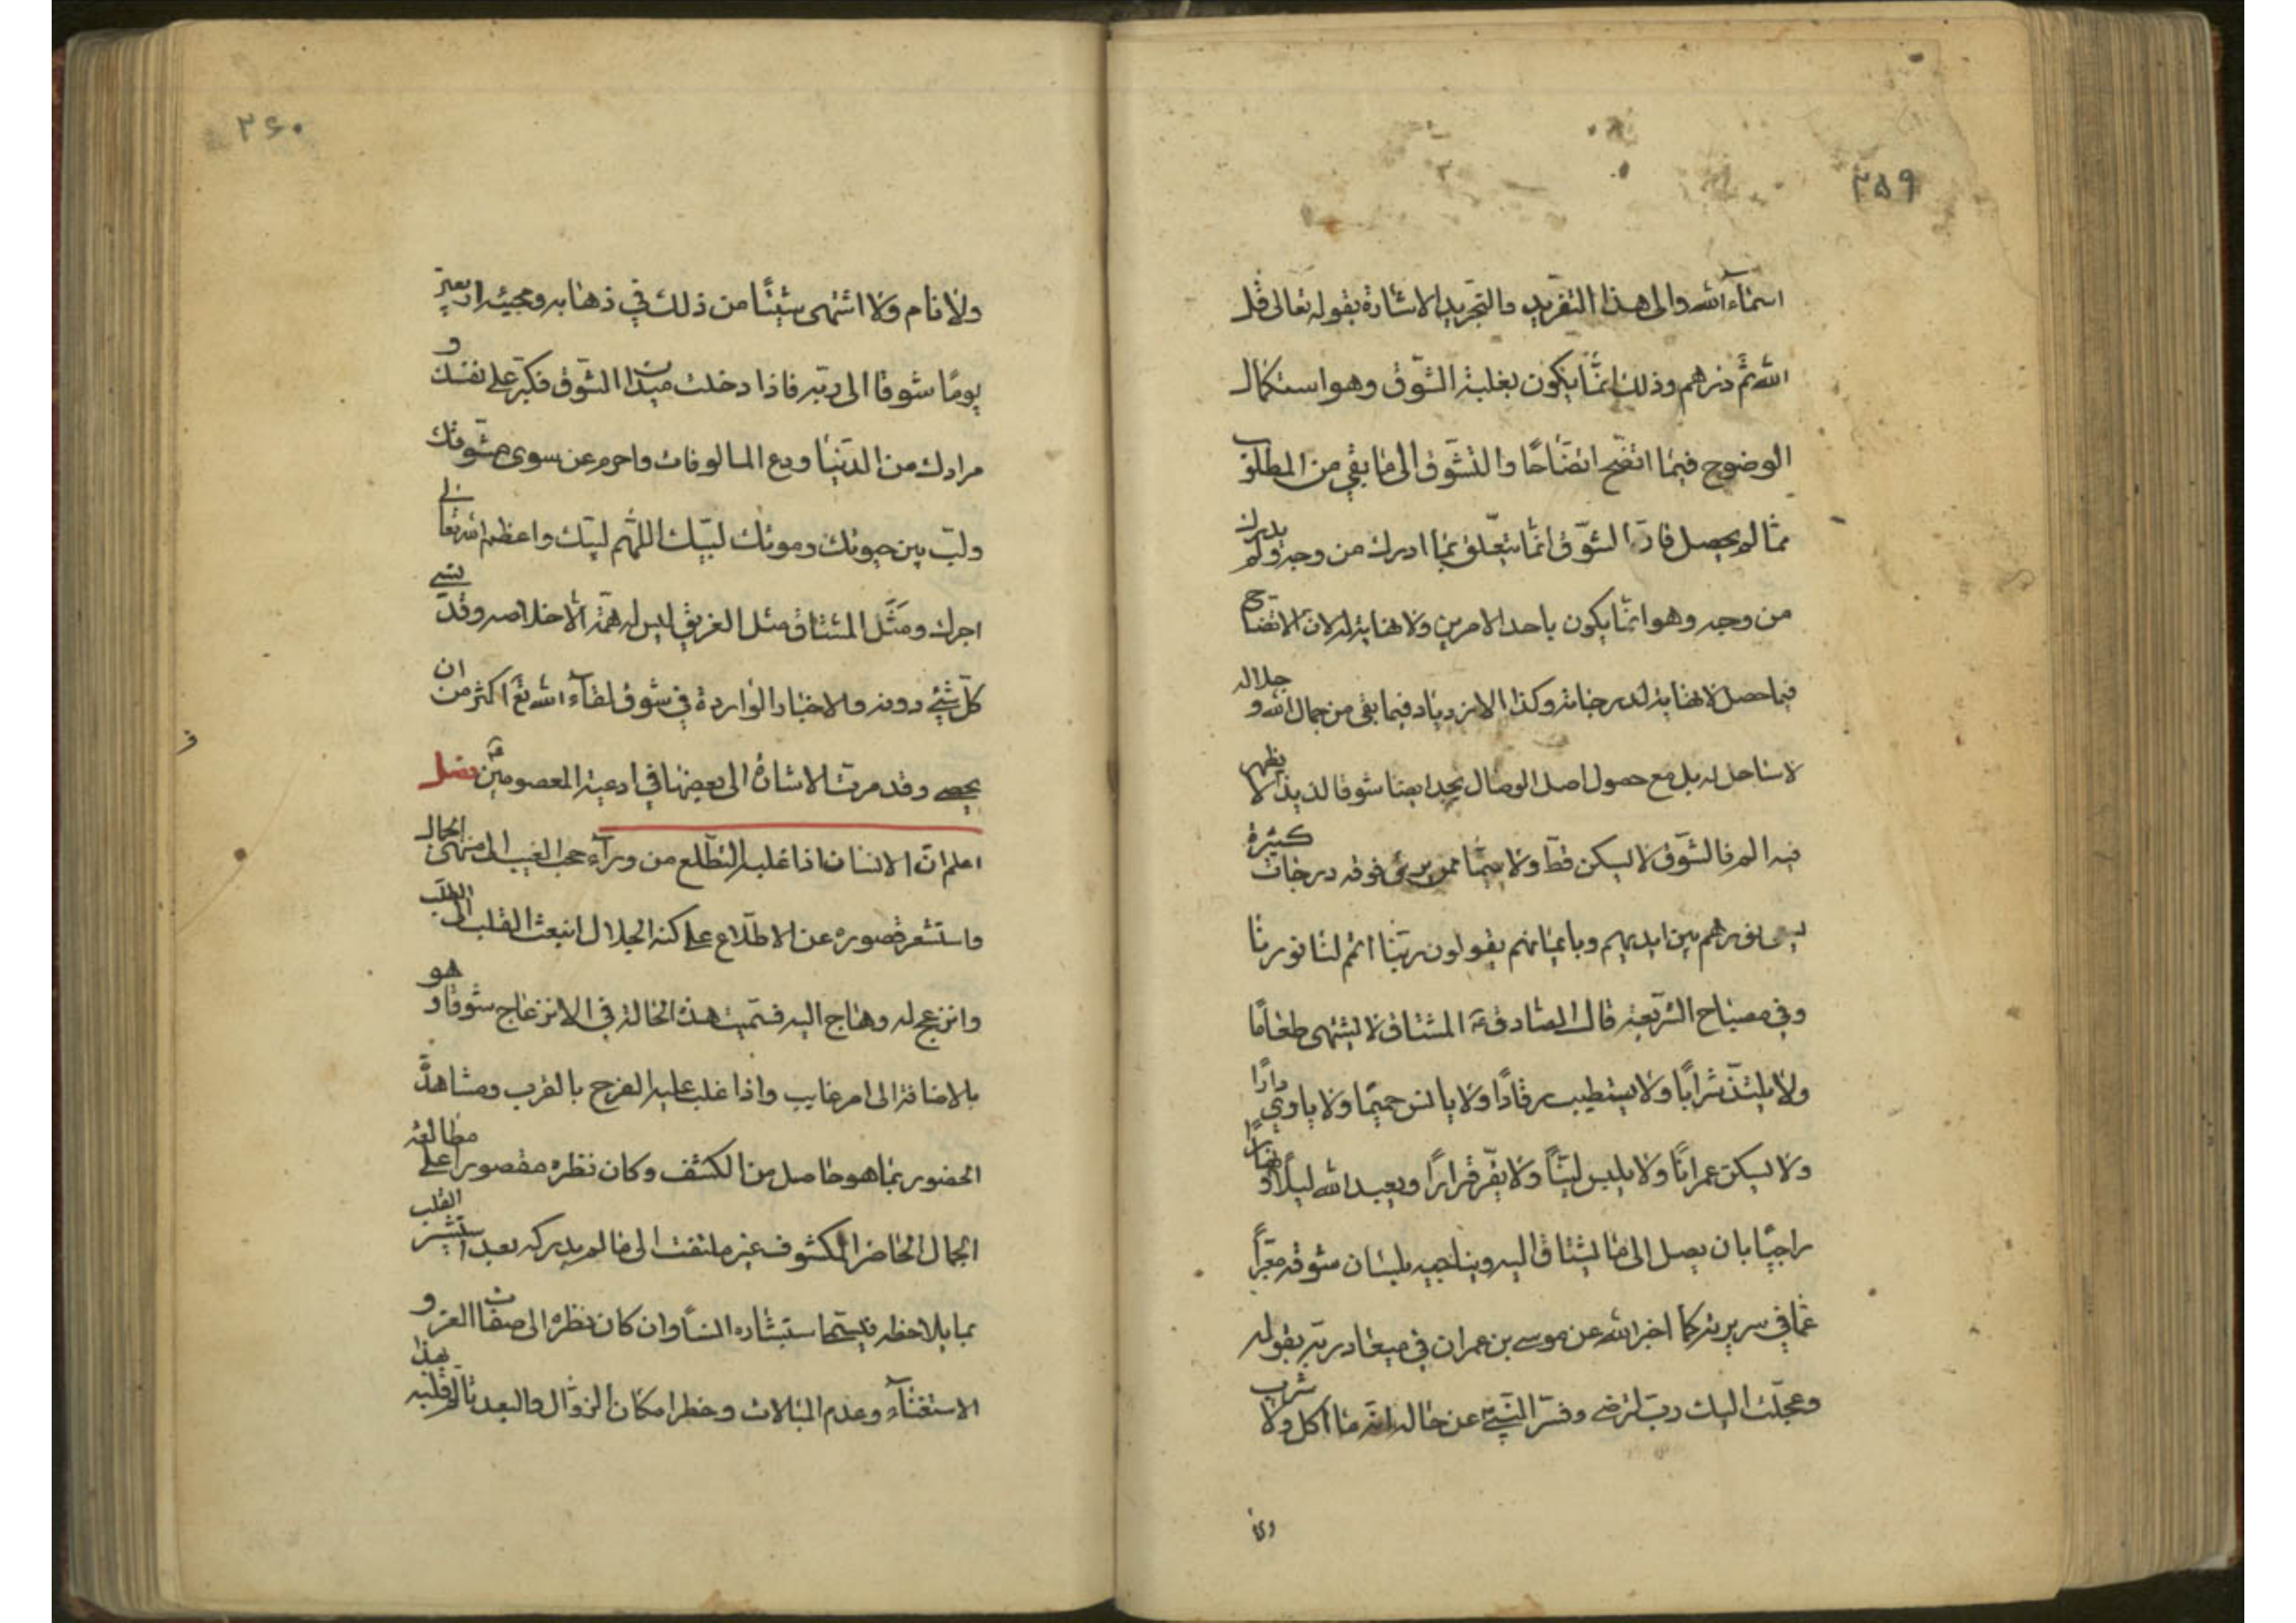 ۲۵۹
اسماء الله والى هذا التفريد والتجريد الاشارة بقوله تعالى قل
الله ثم ذرهم وذلك انما يكون بغلبة الشوق وهو استكمال
الوضوح فيما اتضح اتضاحا والتشوق الى ما بقي من المطلوب
مما لم يحصل فان الشوق انما يتعلق بما ادرك من وجه ولم يدرك
من وجه وهو انما يكون باحد الامرين ولا نهاية له لان الاتضاح
فيما حصل لا نهاية لدرجاته وكذا الازدياد فيما بقى من جمال الله و جلاله
لا ساحل له بل مع حصول اصل الوصال يجد ايضا شوقا لذيذا لا يظهر
فيه الم فالشوق لا يسكن قط ولا سيما ممن يرى فوقه درجات كثيرة
يسعى نورهم بين ايديهم وبايمانهم يقولون ربنا اتمم لنا نورنا
وفي مصباح الشريعة قال الصادق ع المشتاق لا يشتهى طعاما
ولا يلتذ شرابا ولا يستطيب رقادا ولا يانس حميما ولا ياوي دارا
ولا يسكن عمرانا ولا يلبس لينا ولا يقر قرارا ويعبد الله ليلا و نهارا
راجيا بان يصل الى ما يشتاق اليه ويناجيه بلسان شوقه معبرا
عما في سريرته كما اخبر الله عن موسى بن عمران في ميعاد ربه بقوله
وعجلت اليك رب لترضى وفسر النبي عن حاله انه ما اكل ولا شرب
ولا
۲۶۰
ولا نام ولا اشتهى شيئا من ذلك في ذهابه ومجيئه اربعين
يوما شوقا الى ربه فاذا دخلت ميدان الشوق فكبر على نفسك و
مرادك من الدنيا ودع المالوفات واحرم عن سوى مشوقك
ولب بين حيوتك وموتك لبيك اللهم لبيك واعظم الله تعالى
اجرك ومثل المشتاق مثل الغريق ليس له همة الا خلاصه وقد نسي
كل شيء دونه والاخبار الواردة في شوق لقاء الله تع اكثر من ان
يحصى وقد مرت الاشارة الى بعضها في ادعية المعصومين فصل
اعلم ان الانسان اذا غلب التطلع من وراء حجب الغيب الى منتهى الجمال
واستشعر قصوره عن الاطلاع على كنه الجلال انبعث القلب الى الطلب
وانزعج له وهاج اليه فسميت هذه الحالة في الانزعاج شوقا و هو
بالاضافة الى امر غايب واذا غلب عليه الفرح بالقرب ومشاهدة
الحضور بما هو حاصل من الكشف وكان نظره مقصورا على مطالعة
الجمال الحاضر المكشوف غير ملتفت الى ما لم يدركه بعد استبشر القلب
بما يلاحظه فيسمى استبشاره انسا وان كان نظره الى صفات العز و
الاستغناء وعدم المبالات وخطر امكان الزوال والبعد تالم قلبه بهذا